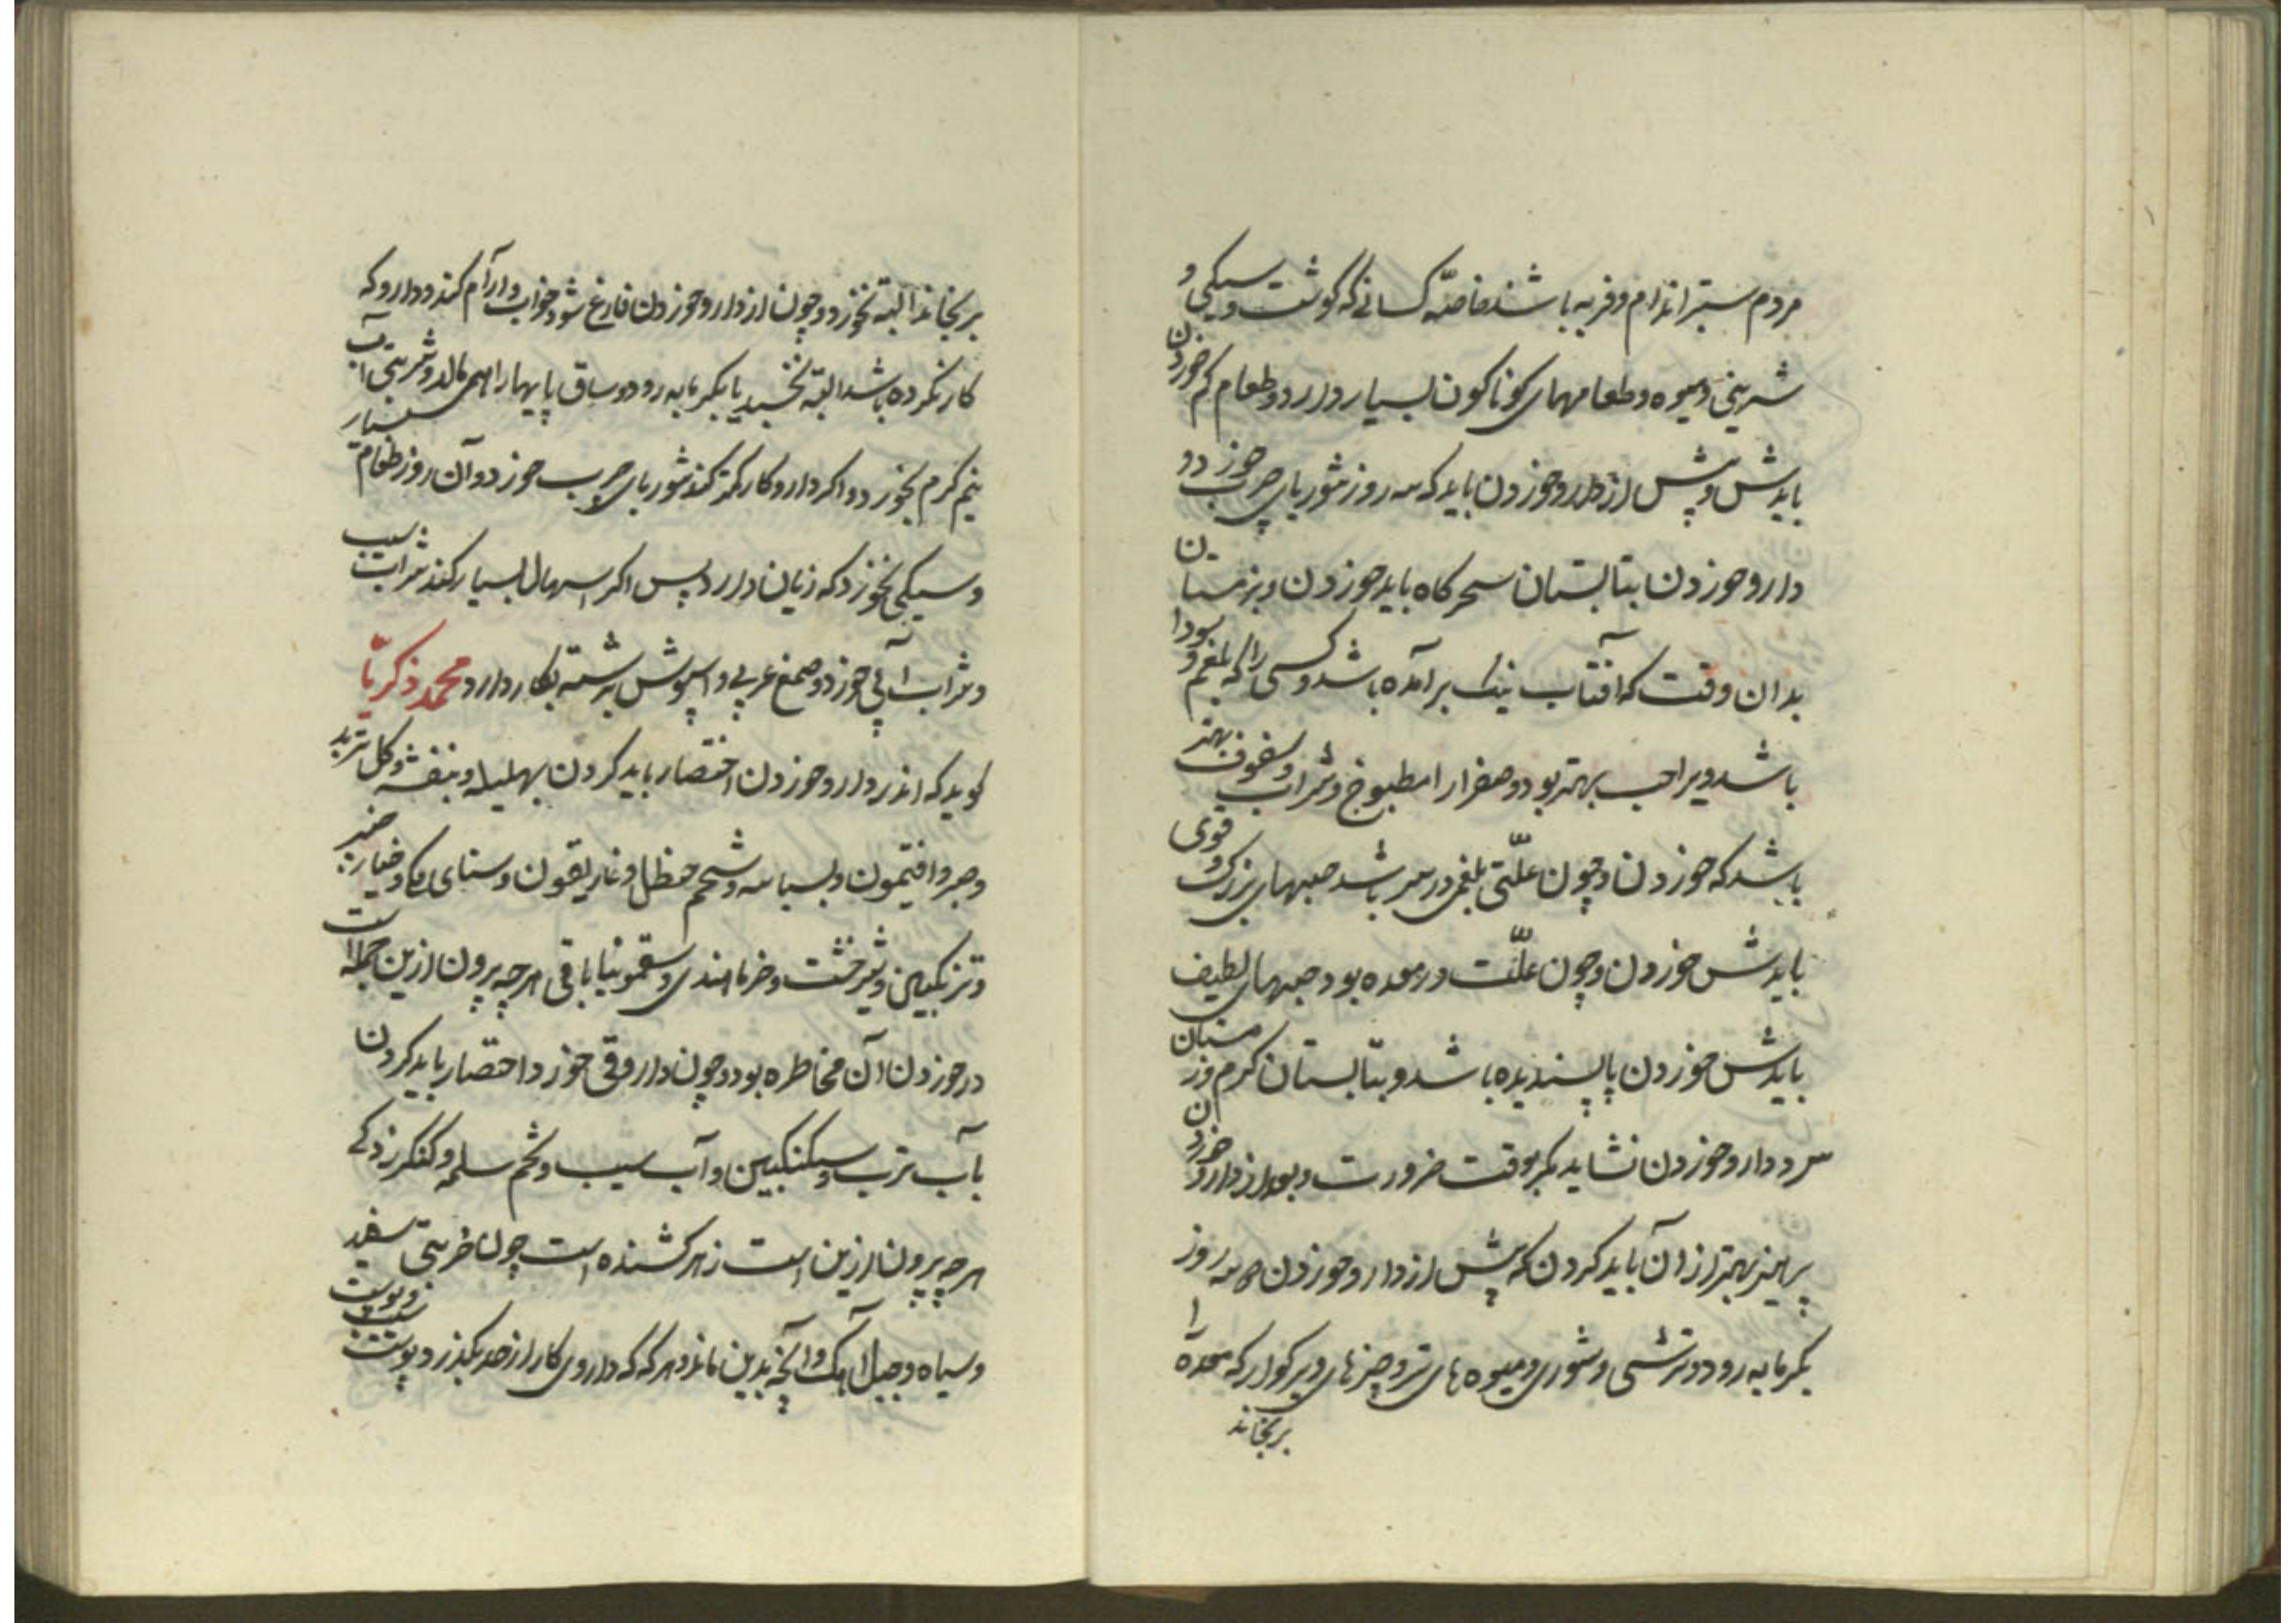 مردم ستبر اندام و فربه باشند خاصّه کسانی که گوشت و سیکی و
شیرینی و میوه و طعامهای کوناکون بسیار دارد و طعام کم خوردن
بایدش و پیش از دارو خوردن باید که سه روز شوربای چرب خورد و
دارو خوردن بتابستان سحرکاه باید خوردن و بزمستان
بدان وقت که آفتاب نیک برآمده باشد و کسی را که بلغم و سودا
باشد ویرا حب بهتر بود و صفرا را مطبوخ و شراب و سفوف بهتر
باشد که خوردن و چون علّتی بلغمی در سر باشد حبهای بزرک و قوی
بایدش خوردن و چون علّت در معده بود حبهای لطیف
بایدش خوردن پا پسندیده باشد و بتابستان کرم و زمستان
سرد دارو خوردن نشاید مکر بوقت ضرورت و بعد از دارو خوردن
پرهیز بهتر از آن باید کردن که پیش از دارو خوردن سه روز
بکرمابه رود و ترشی و شوری و میوه های تر و چیزهای دیر کوار که معده را
برنجاند
برنجاند البته نخورد و چون از دارو خوردن فارغ شود خواب و آرام کند و دارو که
کار نکرده باشد البته نخسبد یا بکرمابه رود و ساق پایها را همی مالد و شربتی آب
نیم کرم بخورد و اکر دارو کار کمتر کند شوربای چرب خورد و آن روز طعام بسیار
و سیکی نخورد که زیان دارد پس اکر اسهال بسیار کند شراب سیب
و شراب آبی خورد و صمغ عربی و اسپوش برشته بکار دارد محمد زکریّا
کوید که اندر دارو خوردن اختصار باید کردن بهلیله و بنفشه و کل و تربد
و صبر و افتیمون و بسباسه و شحم حنظل و غاریقون و سنای مکی و خیار چنبر
و ترنکبین و شیرخشت و خرما هندی و سقمونیا باقی هرچه بیرون ازین جمله است
در خوردن آن مخاطره بود و چون داروی قی خورد اختصار باید کردن
بآب ترب و سکنکبین و آب سیب و تخم سلمه و کنکرزد که
هرچه بیرون ازین است زهر کشنده است چون خربق سفید
و سیاه و جبل آهنک و آنچه بدین ماند و هرکه که داروی کار از حد بکذرد پوست